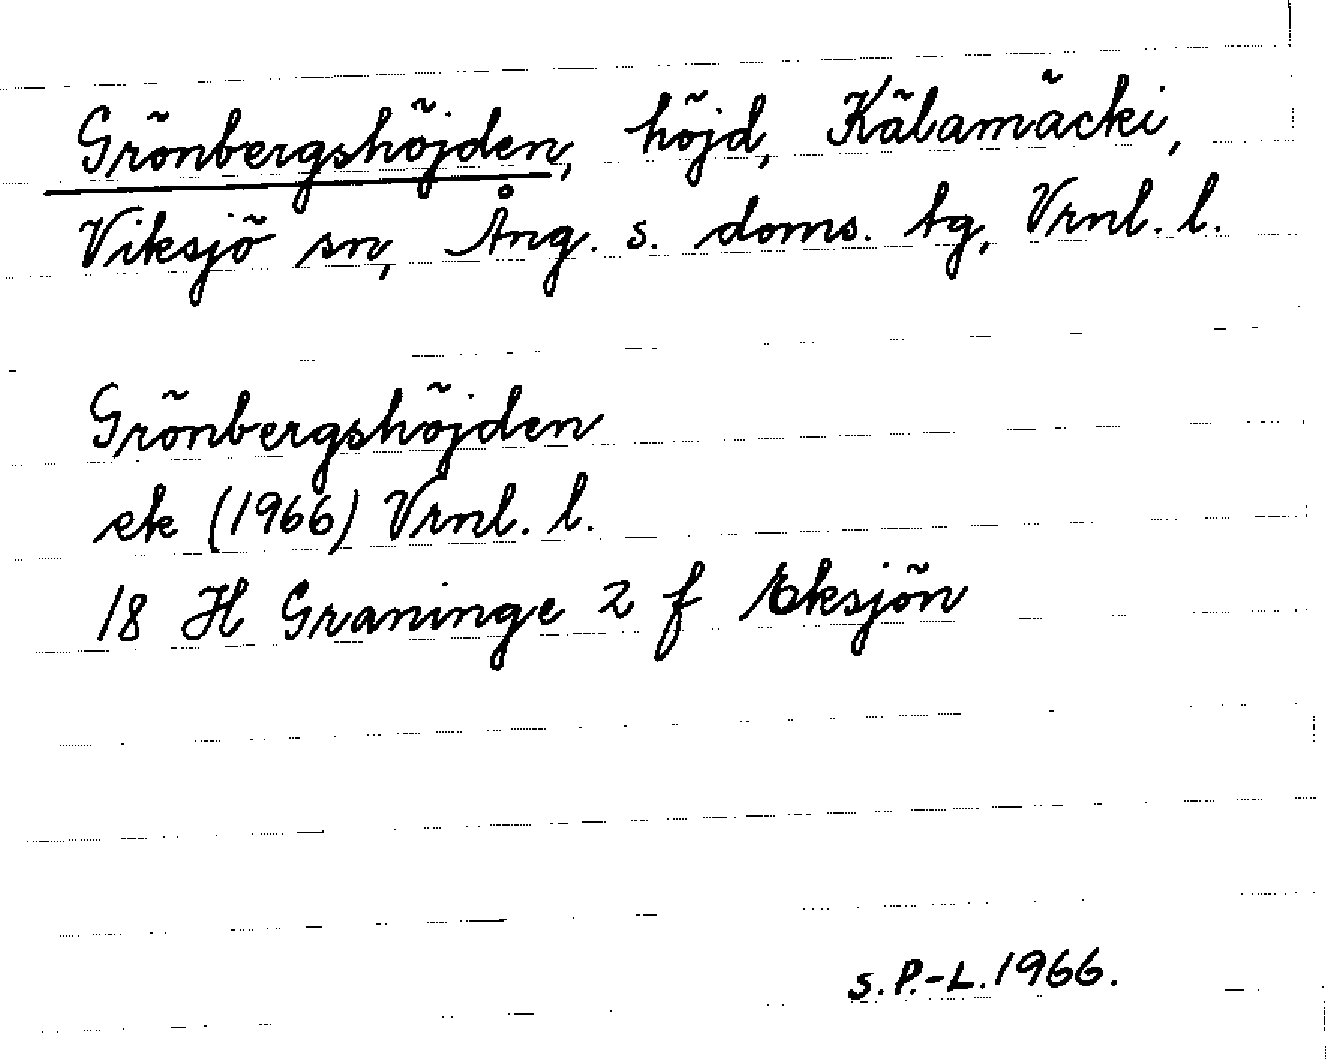 Grönbergshöjden, höjd, Kälamäcki,
Viksjö sn, Ång. s. doms. tg, Vrnl. l.
Grönbergshöjden
ek (1966) Vrnl. l.
18 H Graninge 2 f Eksjön
s. P.-L. 1966.